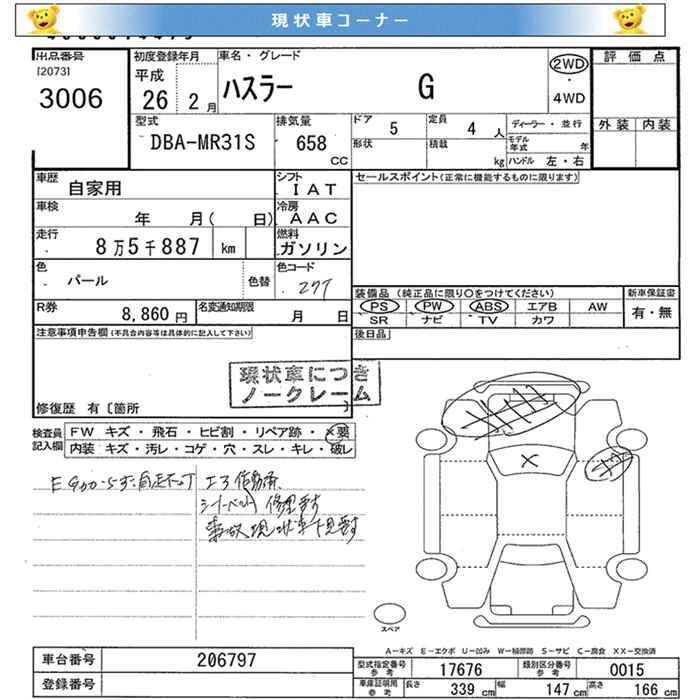 現状車コーナー
出品番号
[2073]
3006
初度登録年月
平成
26 2月
車名・グレード
ハスラー G
2WD
・
4WD
評価点
外装 内装
型式
DBA-MR31S
排気量
658
CC
ドア 5
定員 4 人
形状
積載 kg
ディーラー・並行
モデル年式 年
ハンドル 左・右
車歴 自家用
シフト IAT
セールスポイント(正常に機能するものに限ります)
車検 年 月( 日)
冷房 AAC
走行 8万5千887 km
燃料 ガソリン
色 パール 色替
色コード Z7T
R券 8,860円
名変通知期限 月 日
装備品 (純正品に限り○をつけてください)
PS PW ABS エアB AW
SR ナビ TV カワ
新車保証書
有・無
後日品
注意事項申告欄(不具合内容等は具体的に記入して下さい)
現状車につき
ノークレーム
修復歴 有〔箇所 〕
検査員記入欄
FW キズ・飛石・ヒビ割・リペア跡・×要
内装 キズ・汚レ・コゲ・穴・スレ・キレ・破レ
エアB作動済
シートベルト修理要す
事故現状車下見要す
スペア
A－キズ E－エクボ U－凹み W－補修跡 S－サビ C－腐食 XX－交換済
車台番号 206797
登録番号
型式指定番号 参考 17676
類別区分番号 参考 0015
車庫証明用 参考 長さ 339 cm 幅 147 cm 高さ 166 cm